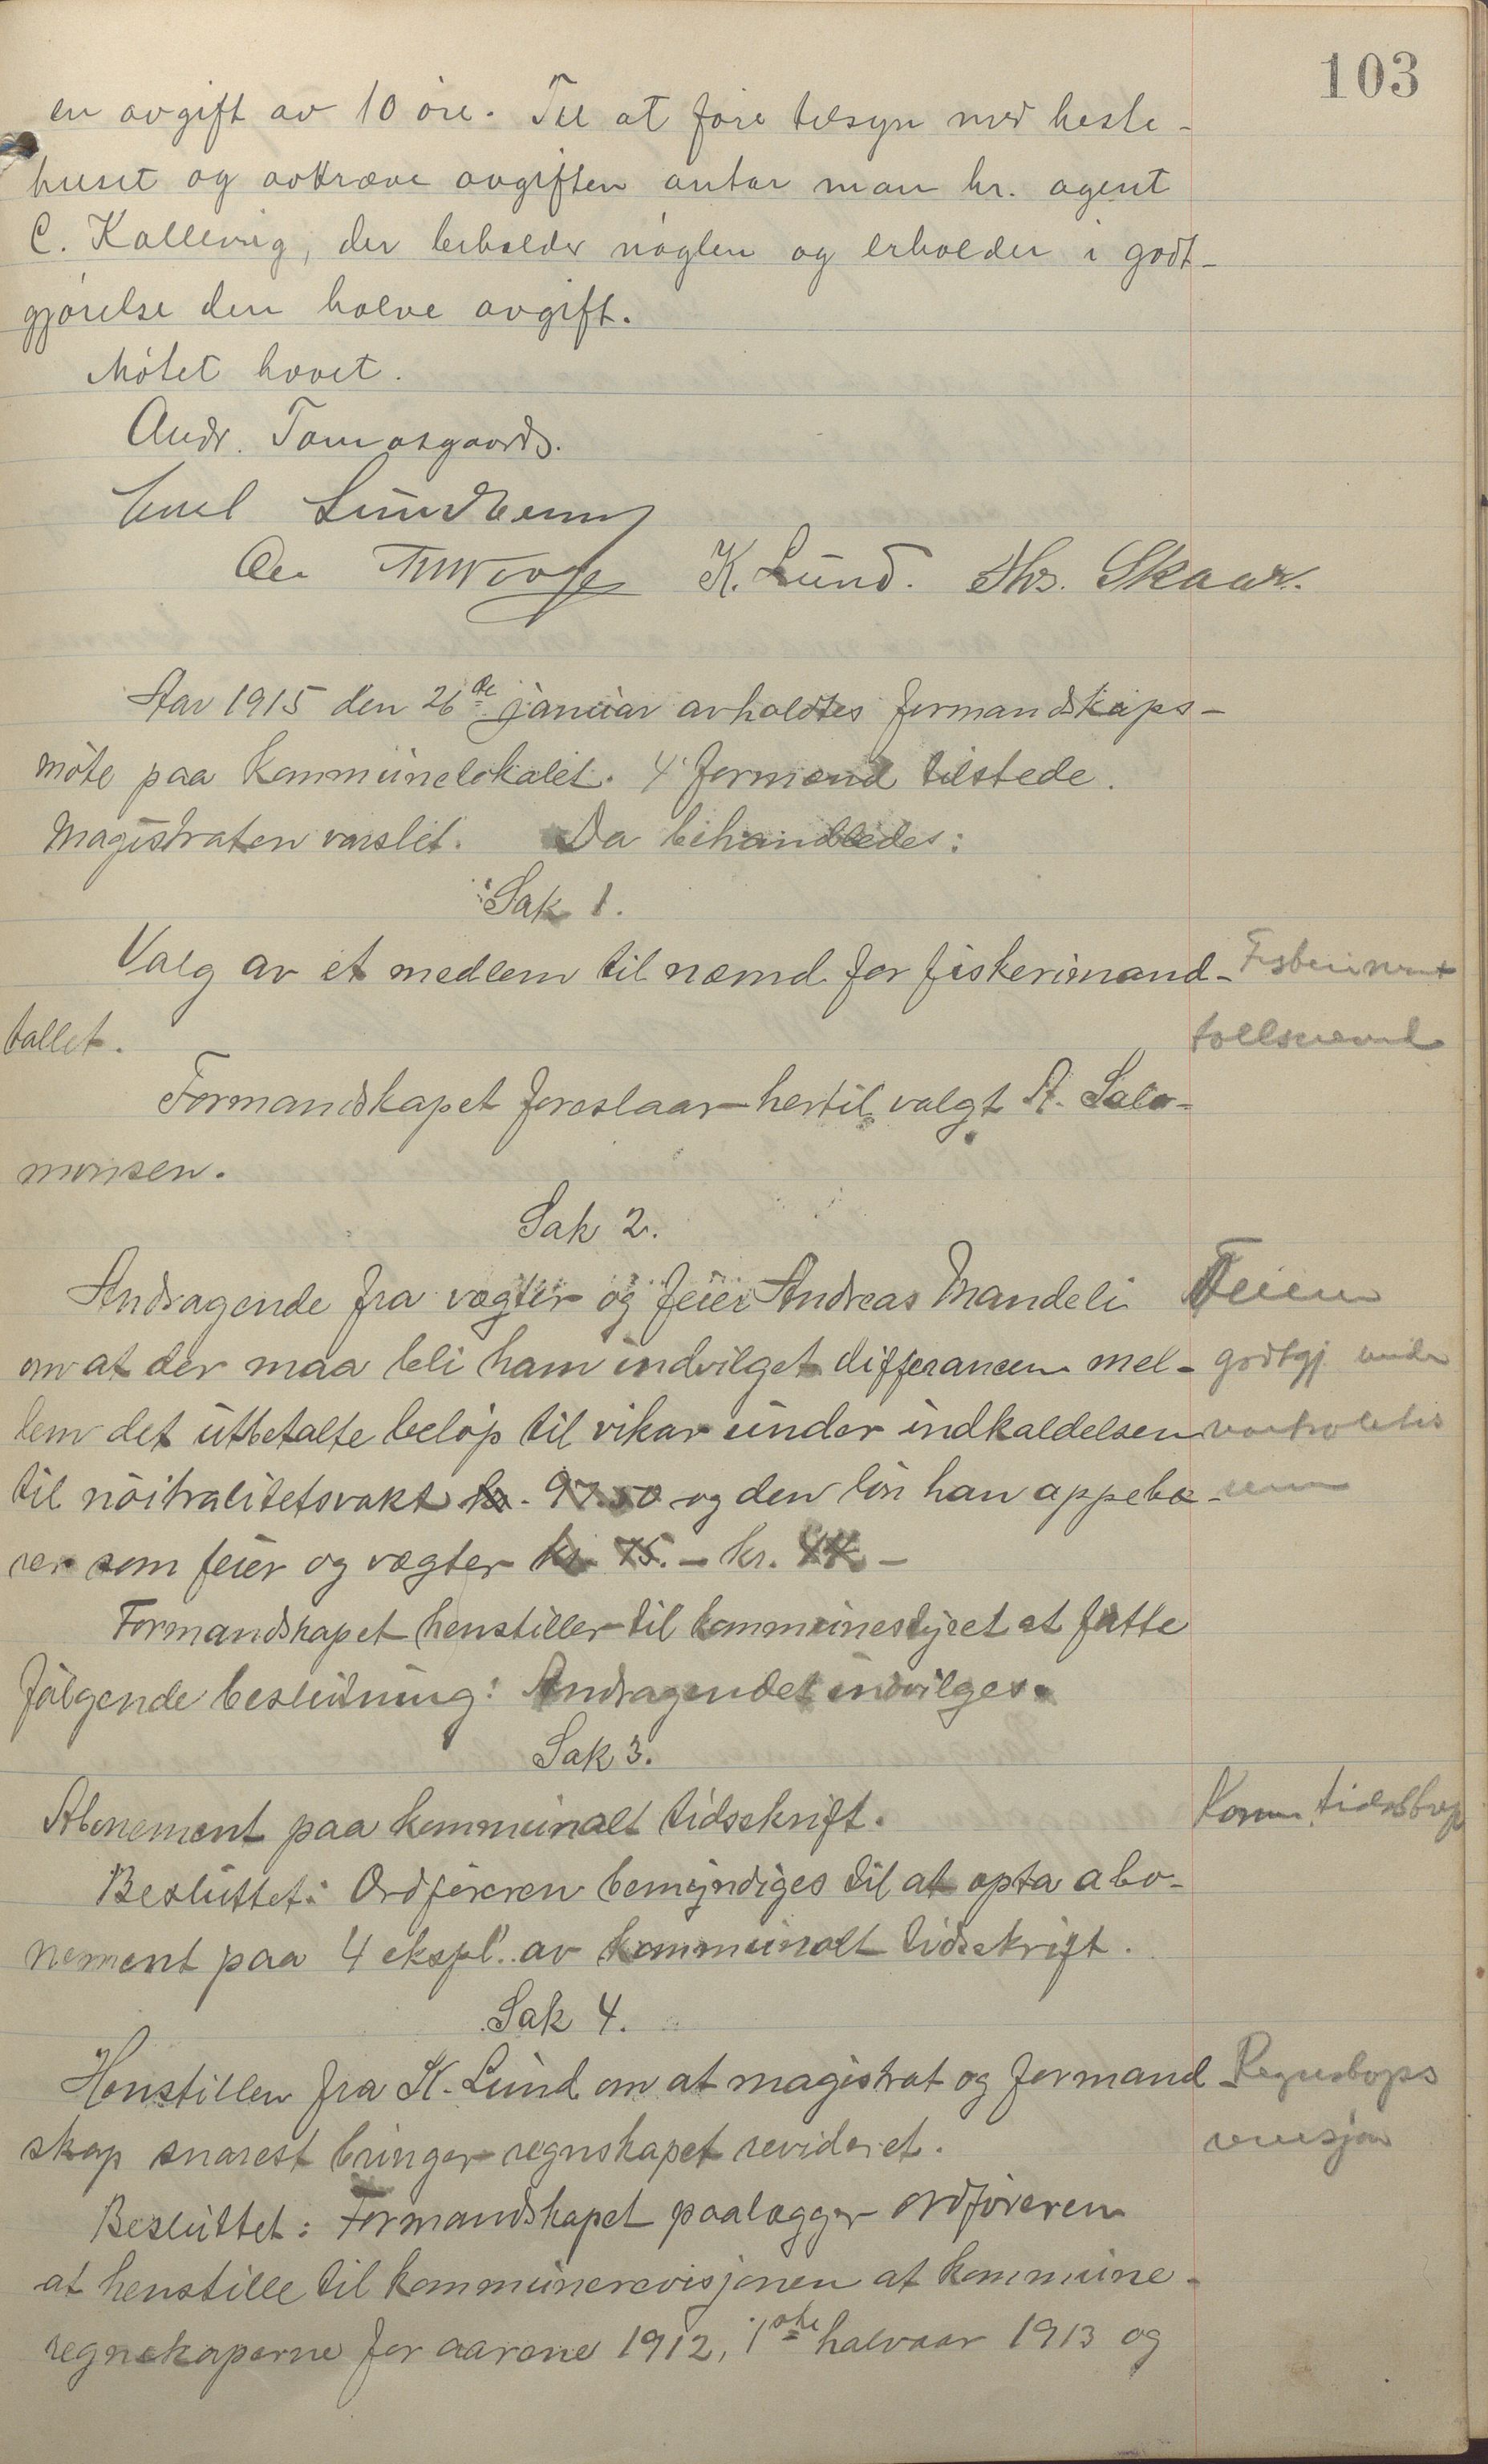 103
en avgift av 10 öre. Til at före tilsyn med heste-
huset og avkræve avgiften antar man hr. agent
C. Kallevig, der beholder nöglen og erholder i godt-
gjörelse den halve avgift.
Mötet hævet.
Andr. Tomasgaards.
Emil
K. Lund. Ths. Skaar.
Aar 1915 den 26de januar avholdtes formandskaps-
möte paa kommunelokalet. 4 formænd tilstede.
Magistraten varslet. Da behandledes:
Sak 1.
Valg av et medlem til næmd for fiskerimand-
tallet.
Formandskapet foreslaar hertil valgt A. Salo-
monsen.
Sak 2.
Feieren
Andragende fra vægter og feier Andreas Mandeli
godtgj under
om at der maa bli ham indvilget differancen mel-
lem det utbetalte belöp til vikar under indkaldelsen
til nöitralitetsvakt kr. 97.50 og den lön han appebæ-
rer som feier og vægter kr. 75. - kr. 44 -
Formandskapet henstiller til kommunestyret at fatte
fölgende beslutning: Andragendet indvilges.
Sak 3.
Abonement paa kommunalt tidsskrift.
Komm. tidsskrift
Besluttet: Ordföreren bemyndiges til at opta abo-
nement paa 4 ekspl. av kommunalt tidsskrift.
Sak 4.
Henstillen fra K. Lund om at magistrat og formand
Regnskaps
skap snarest bringer regnskapet revideret.
revisjon
Besluttet: Formandskapet paalægger ordföreren
at henstille til kommunerevisjonen at kommune-
regnskaperne for aarene 1912, 1ste halvaar 1913 og